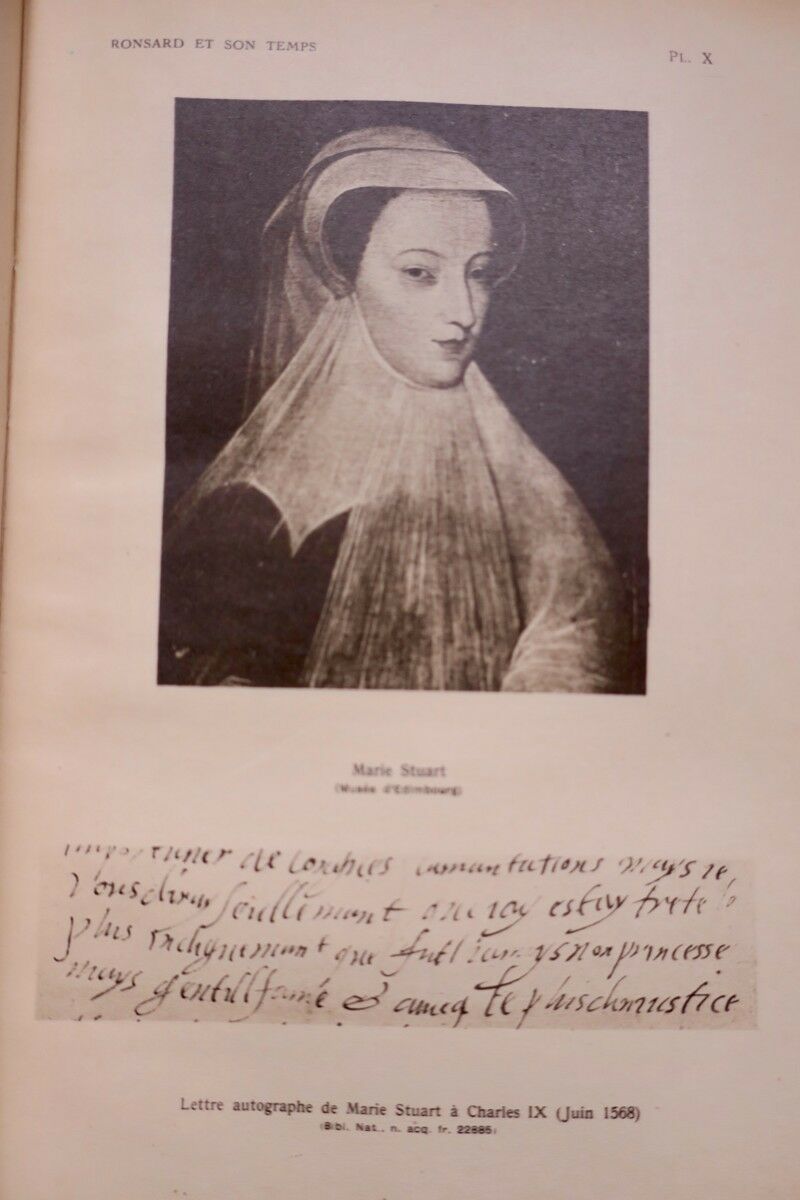 RONSARD ET SON TEMPS
PL. X
Marie Stuart
(Musée d'Edimbourg)
de longues lamantations mays ie
vous diray seullemant que iay estay trete le
plus indignemant que fust iamays non princesse
mays gentillfame & aueq le plus d'iniustice
Lettre autographe de Marie Stuart à Charles IX (Juin 1568)
(Bibl. Nat., n. acq. fr. 22885)